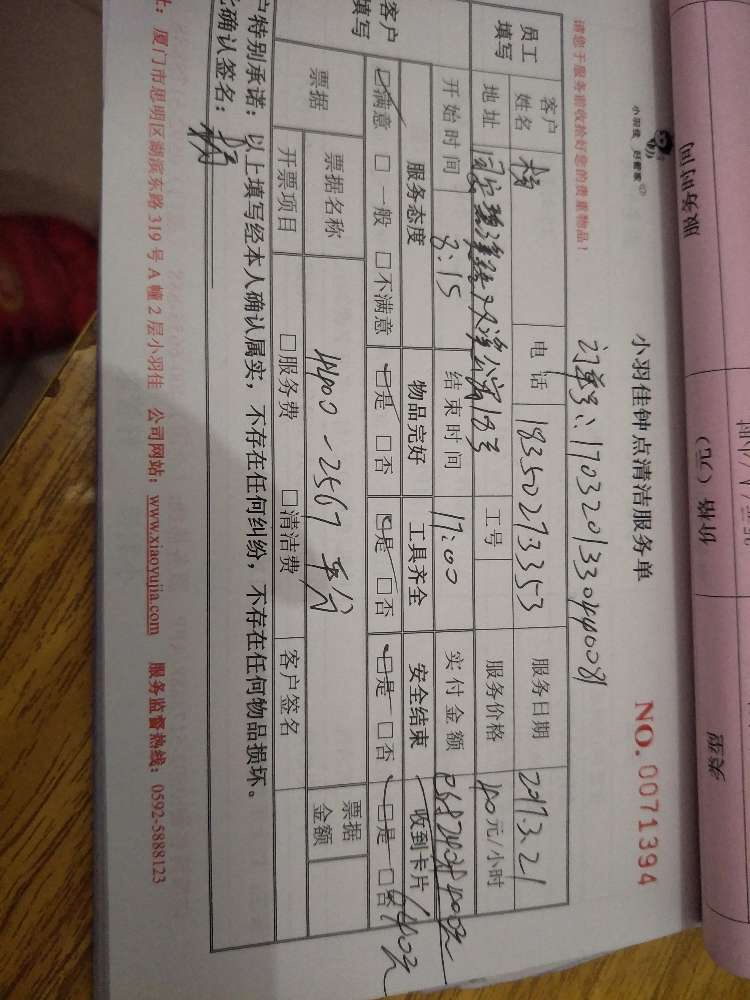 服务时间
价格（元）
小羽佳 好管家
小羽佳钟点清洁服务单
NO. 0071394
请您于服务前收拾好您的贵重物品！
员工填写
客户姓名 杨
电话 18350273353
服务日期 2017.3.21
地址
工号
服务价格 40元/小时
开始时间 8:15
结束时间 17:00
实付金额
客户填写
服务态度 物品完好 工具齐全 安全结束 收到卡片
☑满意 □一般 □不满意 ☑是 □否 ☑是 □否 ☑是 □否 ☑是 □否
票据
票据名称
票据金额
4400-2567
开票项目 □服务费 □清洁费 客户签名
户特别承诺：以上填写经本人确认属实，不存在任何纠纷，不存在任何物品损坏。
此确认签名：杨
址：厦门市思明区湖滨东路 319 号 A 幢 2 层小羽佳 公司网站：www.xiaoyujia.com 服务监督热线：0592-5888123